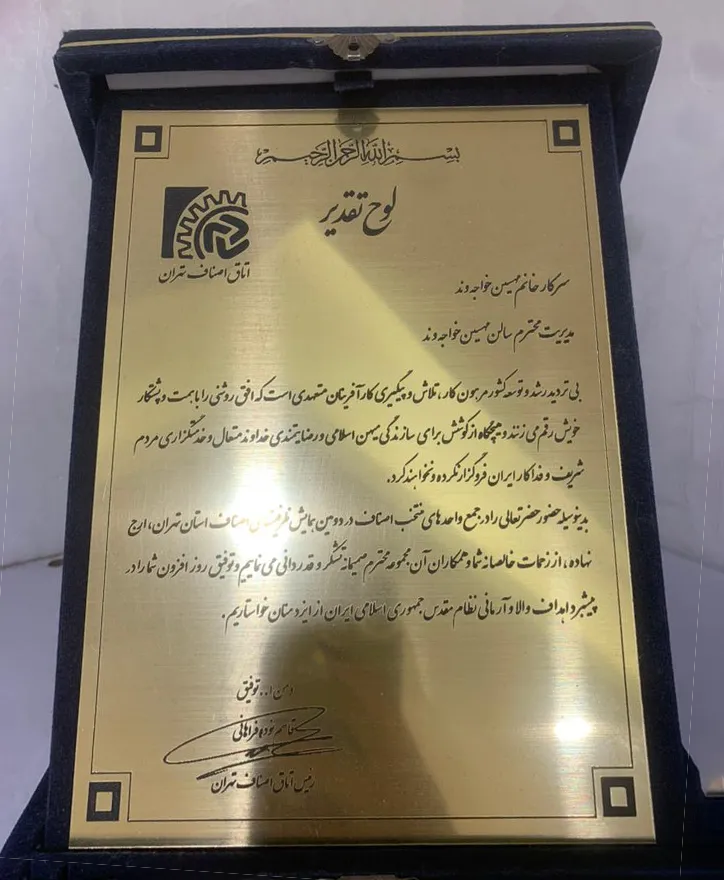 بسم الله الرحمن الرحیم
لوح تقدیر
اتاق اصناف تهران
سرکار خانم مهسین خواجه‌وند
مدیریت محترم سالن مهسین خواجه‌وند
بی تردید رشد و توسعه کشور مرهون کار، تلاش و پیگیری کارآفرینان متعهدی است که افق روشنی را با همت و پشتکار
خویش رقم می زنند و هیچگاه از کوشش برای سازندگی میهن اسلامی و رضایتمندی خداوند متعال و خدمتگزاری مردم
شریف و فداکار ایران فروگزار نکرده و نخواهند کرد.
بدینوسیله حضور حضرتعالی را در جمع واحدهای منتخب اصناف در دومین همایش ظرفیتهای اصناف استان تهران، ارج
نهاده، از زحمات خالصانه شما و همکاران آن مجموعه محترم صمیمانه تشکر و قدردانی می نماییم و توفیق روز افزون شما را در
پیشبرد اهداف والا و آرمانی نظام مقدس جمهوری اسلامی ایران از ایزد منان خواستاریم.
و من ا... توفیق
قاسم نوده فراهانی
رئیس اتاق اصناف تهران